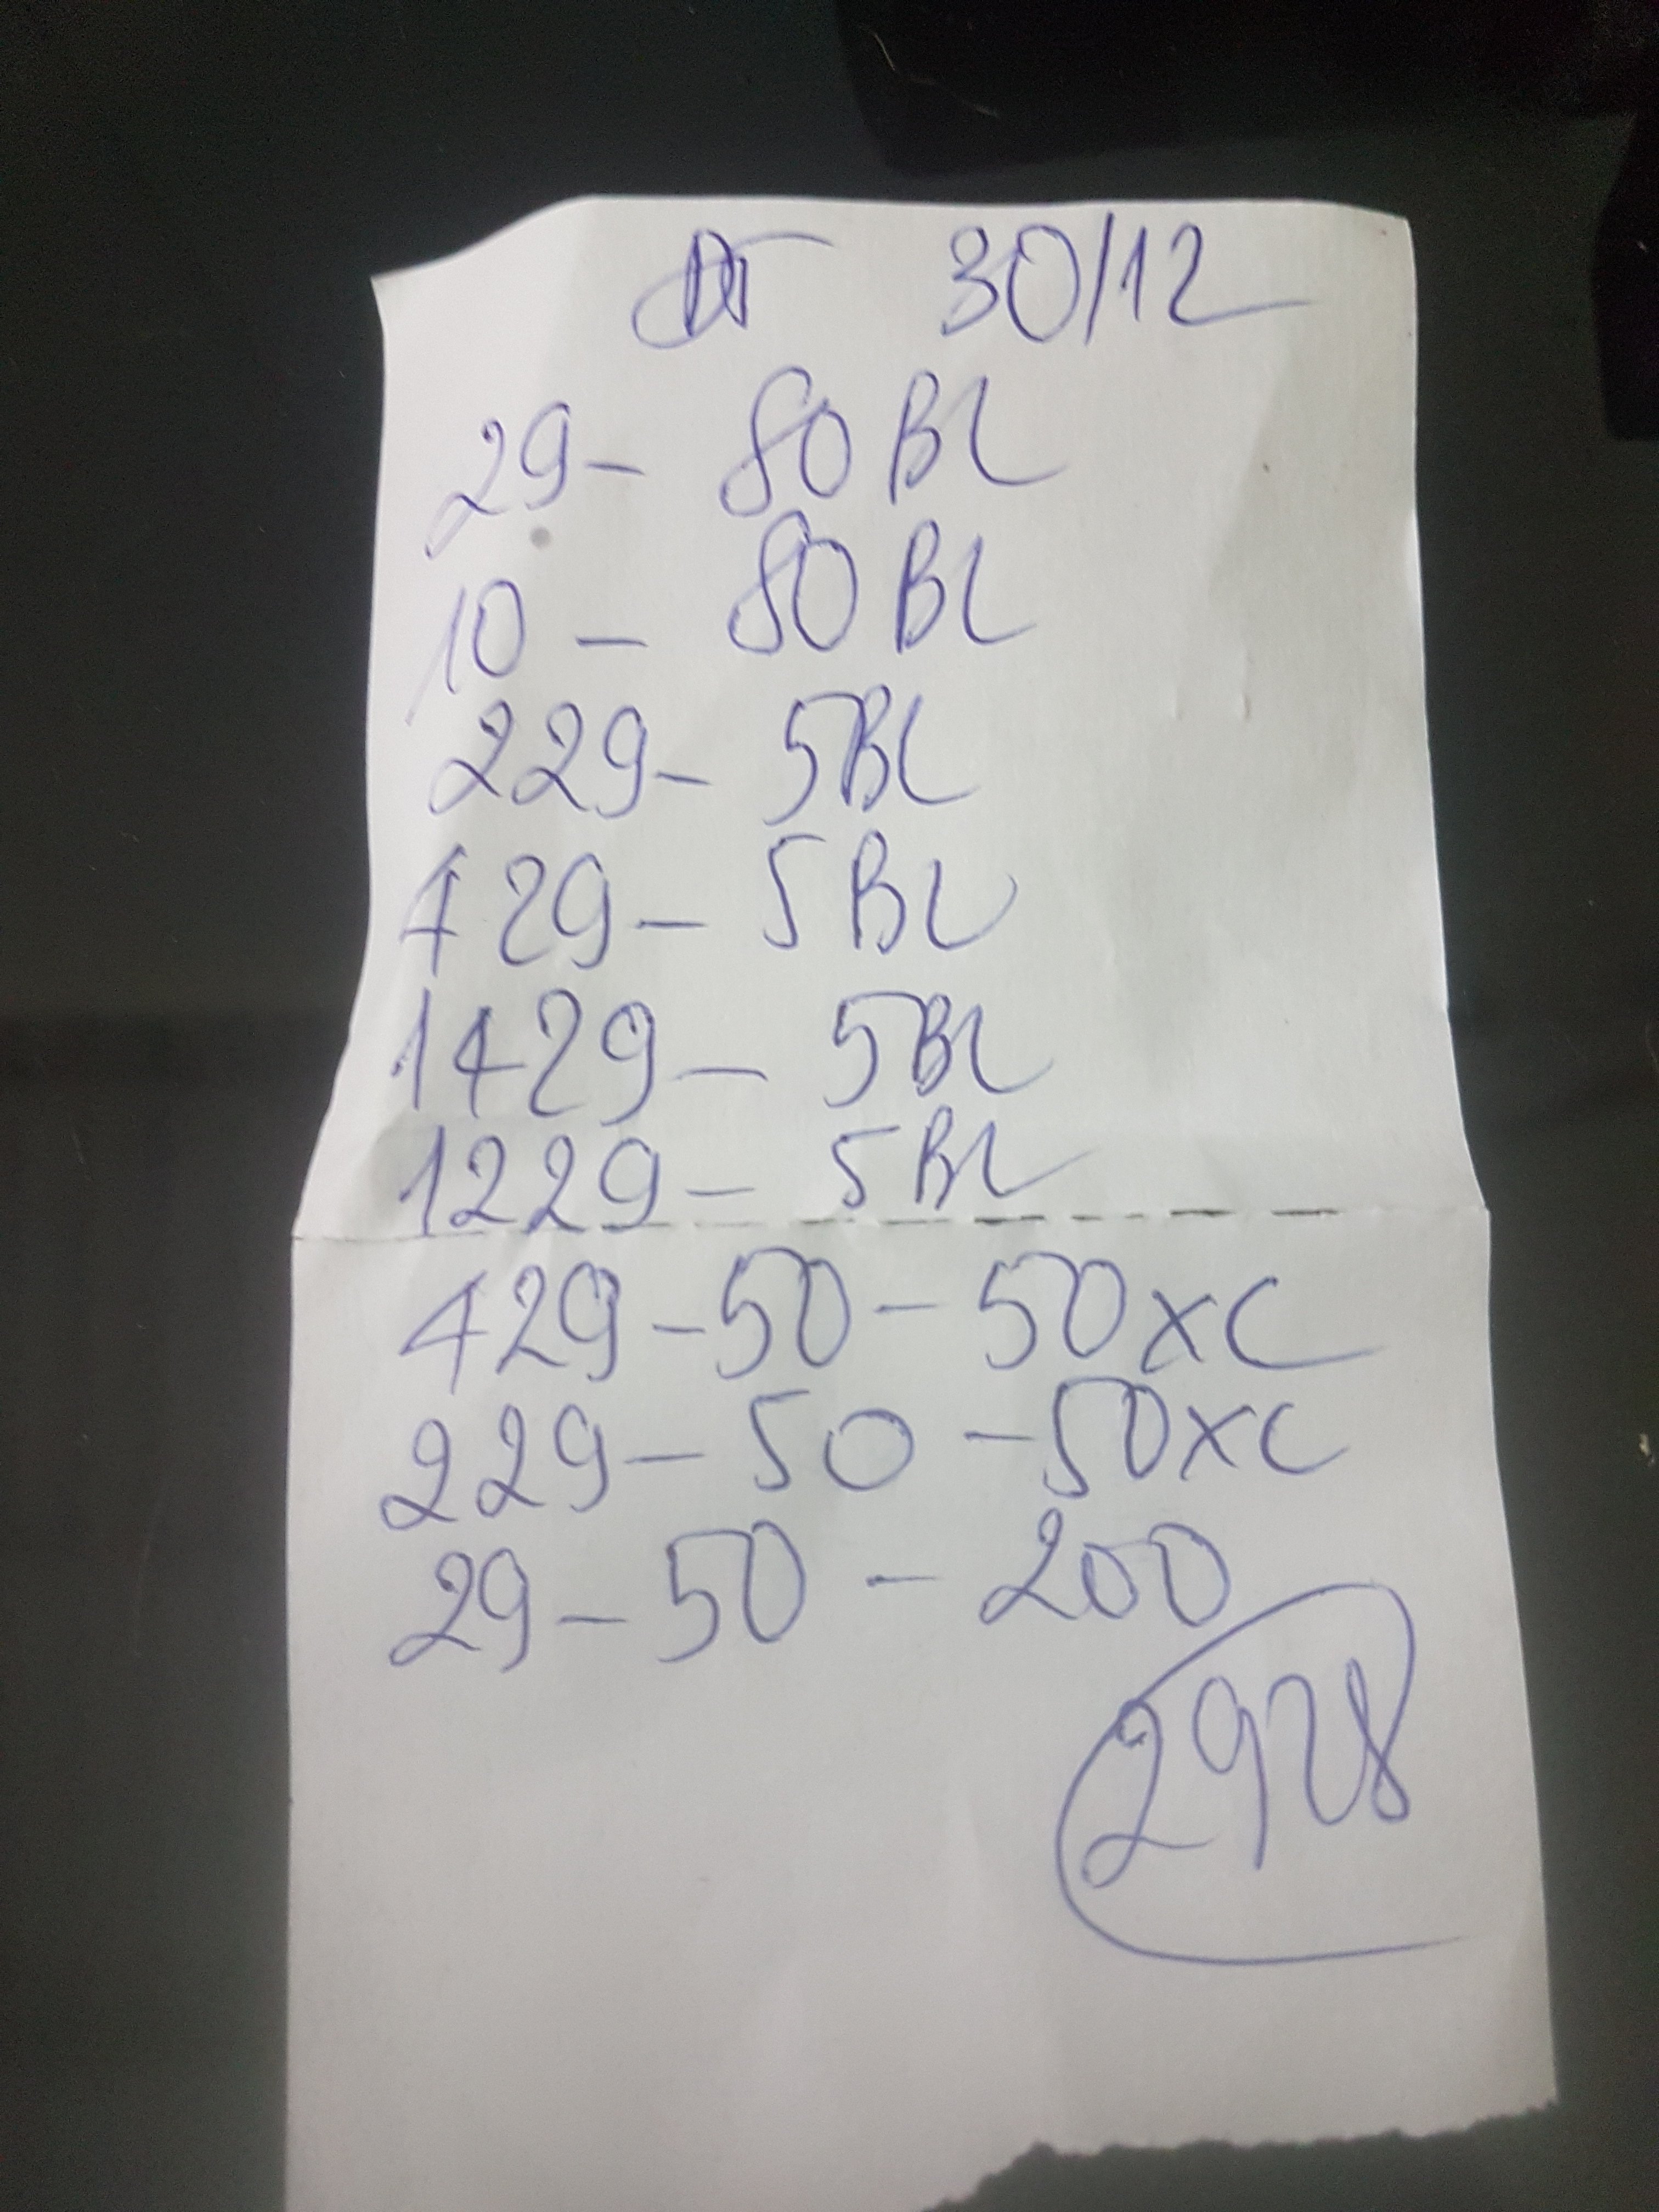 ĐT 30/12
29 - 80 BL
10 - 80 BL
229 - 5BL
429 - 5BL
1429 - 5BL
1229 - 5BL
429 - 50 - 50xc
229 - 50 - 50xc
29 - 50 - 200
2928